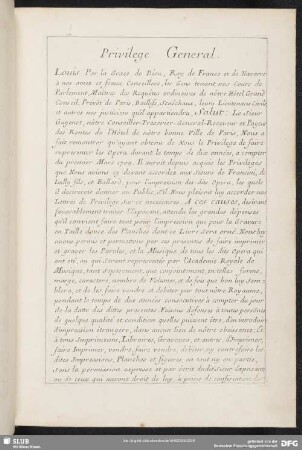 Privilege General.
Louis Par la Grace de Dieu, Roy de France et de Navarre
à nos amez et feaux Conseillers, les Gens tenant nos Cours de
Parlement, Maîtres des Requêtes ordinaires de nôtre Hôtel, Grand
Conseil, Prévôt de Paris, Baillifs, Sénéchaux, leurs Lieutenans Civils
et autres nos justiciers qu'il appartiendra, Salut. Le Sieur
Guyenet, nôtre Conseiller Tresorier General-Receveur et Payeur
des Rentes de l'Hôtel de nôtre bonne Ville de Paris, Nous a
fait remontrer qu'ayant obtenu de Nous le Privilege de faire
representer les Opera durant le temps de dix années, à compter
du premier Mars 1709. Il auroit depuis acquis les Privileges
que Nous avions cy devant accordez aux Sieurs de Francini, de
Lully fils, et Ballard pour l'impression des dits Opera, les quels
il desireroit donner au Public, s'il Nous plaisoit luy accorder nos
Lettres de Privilege sur ce necessaires. A ces causes, desirant
favorablement traiter l'Exposant, attendu les grandes dépenses
qu'il convient faire tant pour l'impression que pour la Gravure
en Taille douce des Planches dont ce Livre sera orné. Nous luy
avons permis et permettons par ces presentes de faire imprimer
et graver les Paroles, et la Musique de tous les dits Opera qui
ont été, ou qui seront representez par l'Academie Royale de
Musique, tant separement, que conjointement, en telles forme,
marge, caractere, nombre de Volumes, et de fois que bon luy sem-
blera, et de les faire vendre et debiter par tout nôtre Royaume,
pendant le temps de dix années consecutives à compter du jour
de la date des dites presentes. Faisons défenses à toutes personnes
de quelque qualité et condition qu'elles puissent être, d'en introduire
d'impression étrangere, dans aucun lieu de nôtre obeissance; Et
à tous Imprimeurs, Libraires, Graveurs, et autres, d'Imprimer,
faire Imprimer, vendre, faire vendre, debiter, ny contrefaire les
dites Impressions, Planches et figures, en tout ny en partie,
sans la permission expresse et par écrit dudit Sieur Exposant
ou de ceux qui auront droit de luy, à peine de confiscation des
SLUB
Wir führen Wissen.
gefördert von der
Deutschen Forschungsgemeinschaft